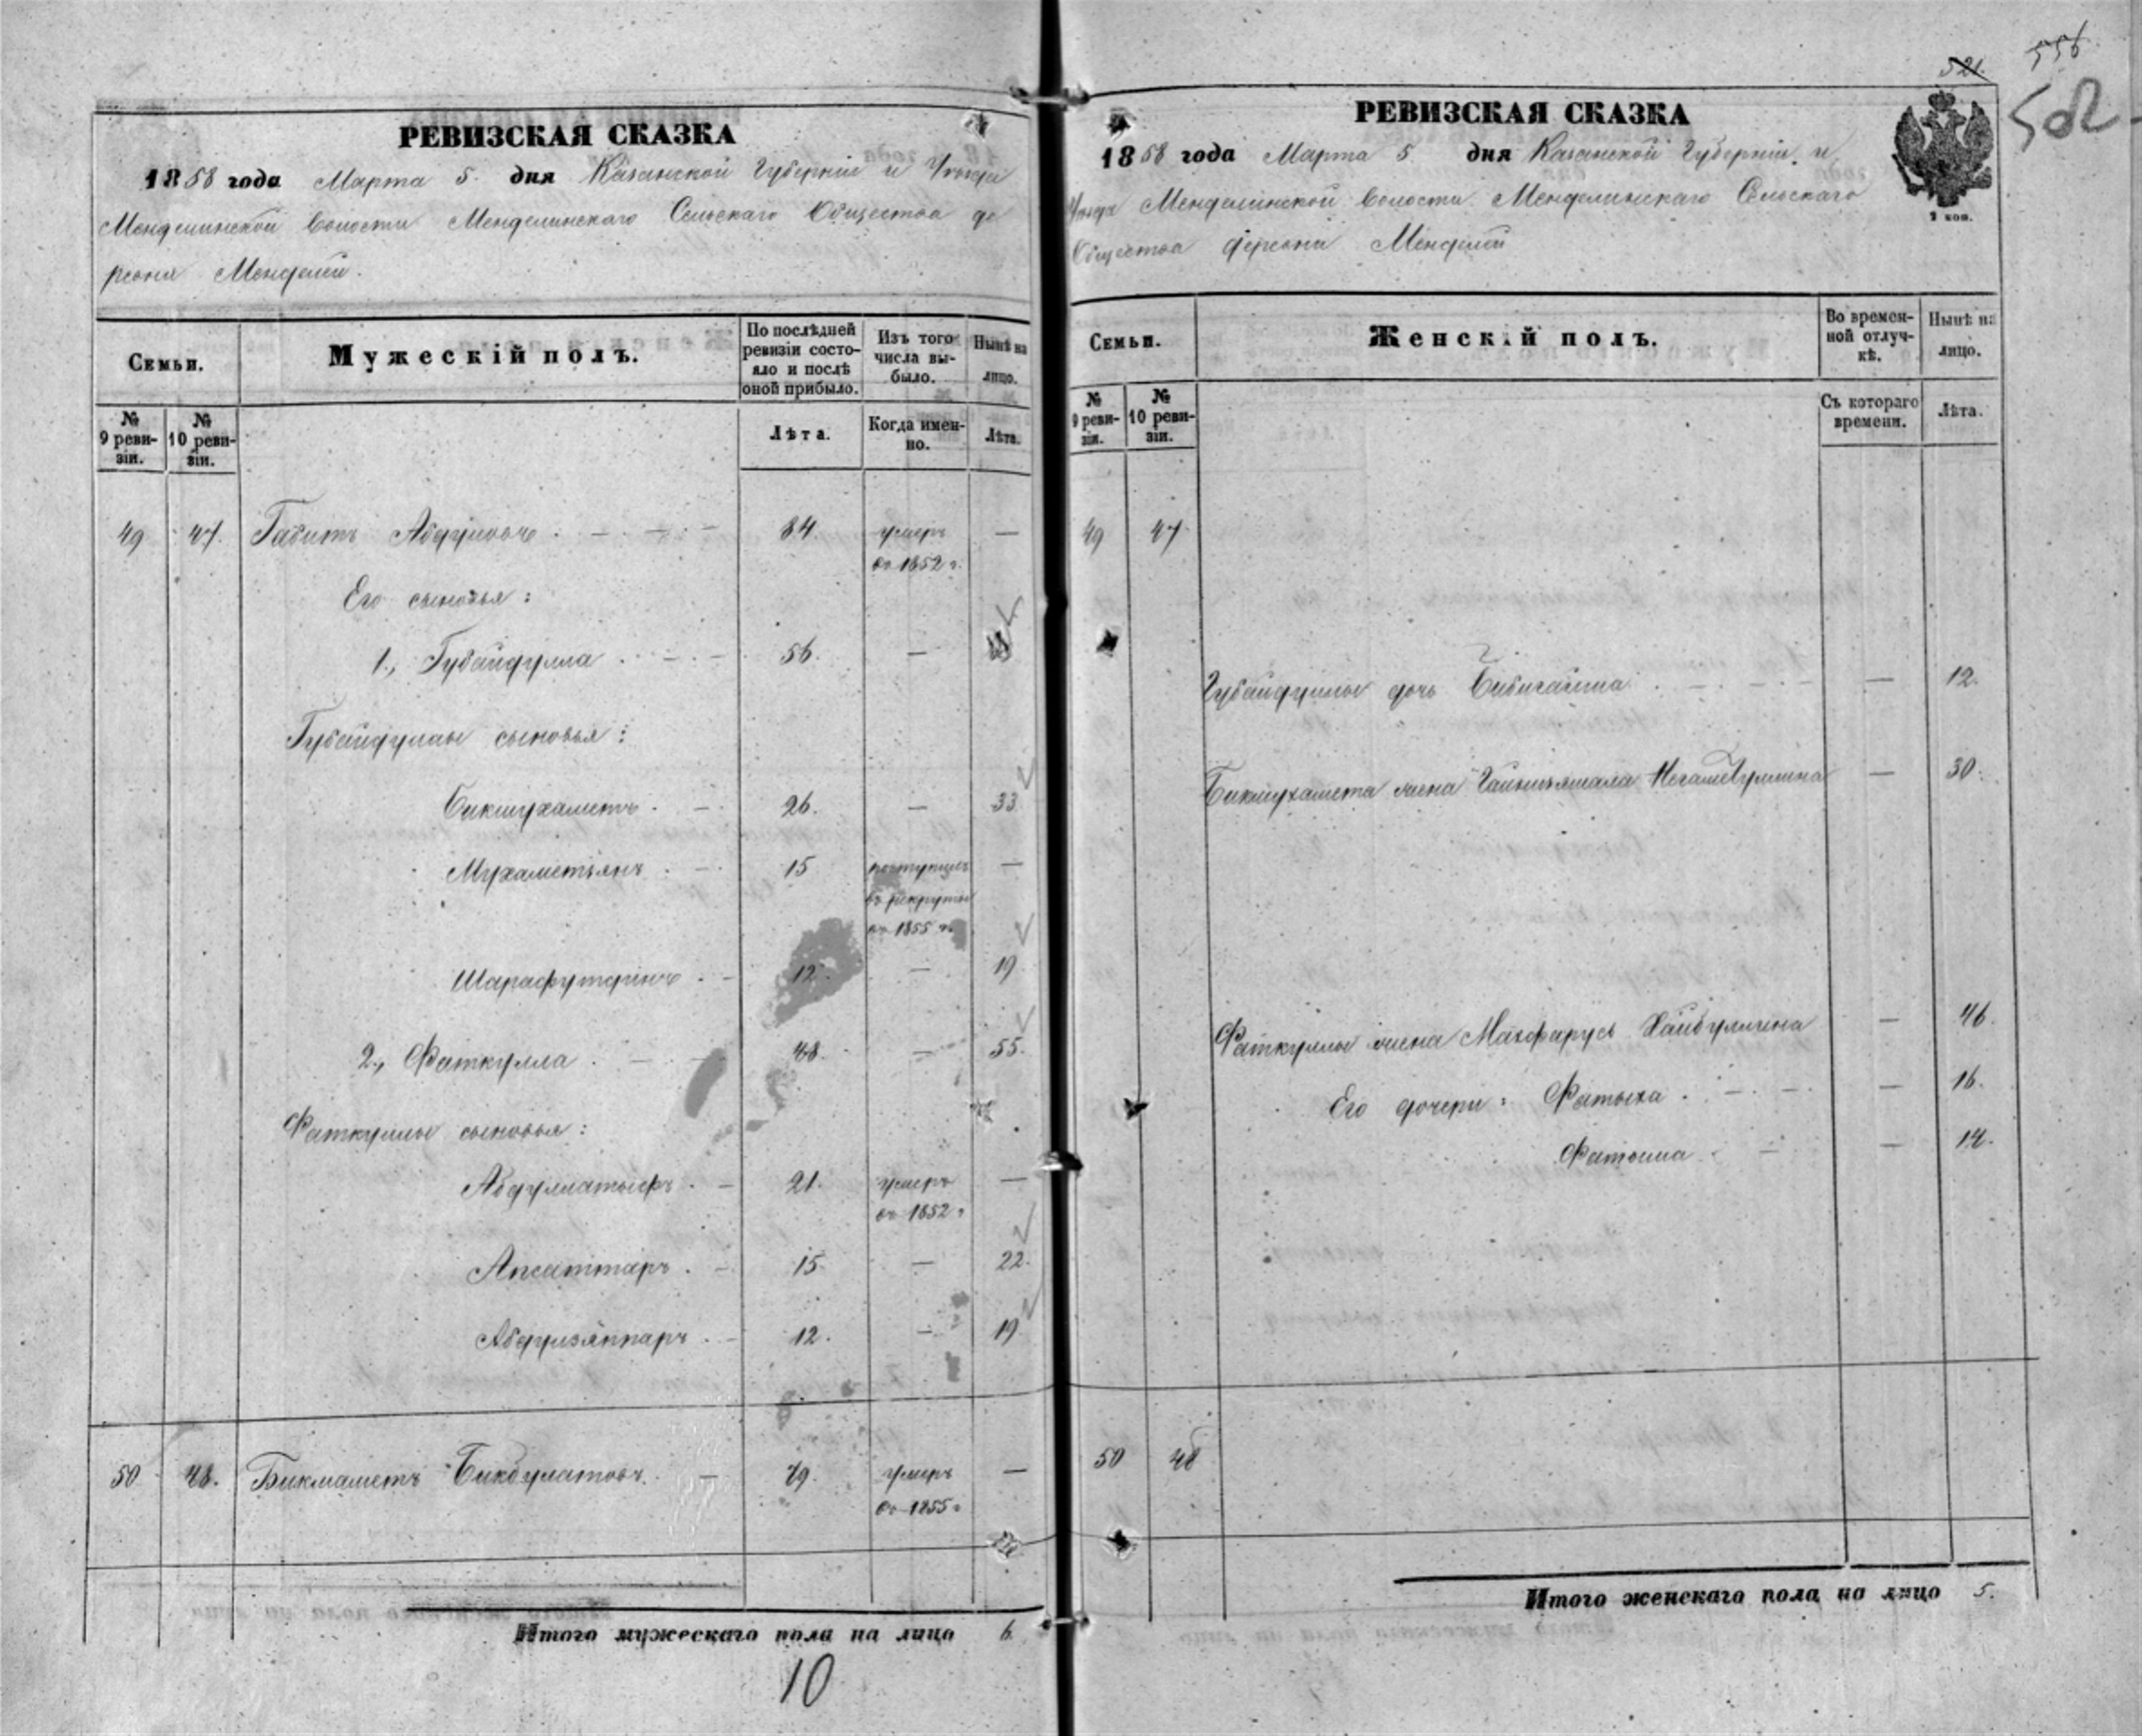 521.
556
502
РЕВИЗСКАЯ СКАЗКА
1858 года Марта 5. дня Казанской Губерніи и Уѣзда
Менделинской волости Менделинскаго Сельскаго Общества де
ревни Менделей.
Семьи.
Мужескій полъ.
По послѣдней ревизіи состояло и послѣ оной прибыло.
Изъ того числа выбыло.
Нынѣ на лицо.
№ 9 ревизіи.
№ 10 ревизіи.
Лѣта.
Когда именно.
Лѣта.
49 47. Габитъ Абдуловъ 84. умеръ —
въ 1852 г.
Его сыновья:
1., Губайдулла 56. —
Губайдуллы сыновья:
Бикмухаметъ 26. — 33
Мухаметьянъ 15 поступилъ —
въ рекруты
въ 1855 г.
Шарафутдинъ 12. — 19
2., Фаткулла 48. — 55.
Фаткуллы сыновья:
Абдуллатыфъ 21. умеръ —
въ 1852 г
Апсаттаръ 15. — 22.
Абдулзяппаръ 12. — 19
50 48. Бикмаметъ Бикбулатовъ. 79. умеръ —
въ 1855 г
Итого мужескаго пола на лицо 6.
10
РЕВИЗСКАЯ СКАЗКА
1858 года Марта 5. дня Казанской Губерніи и
Уѣзда Менделинской волости Менделинскаго Сельскаго
Общества деревни Менделей
1 коп.
Семьи.
Женскій полъ.
Во временной отлучкѣ.
Нынѣ на лицо.
№ 9 ревизіи.
№ 10 ревизіи.
Съ котораго времени.
Лѣта.
49 47.
Губайдуллы дочь — 12.
Бикмухамета жена — 30.
Фаткуллы жена Махфарусь Хайбуллина — 46.
Его дочери: Фатыха — 16.
Фатыма — 14.
50 48
Итого женскаго пола на лицо 5.